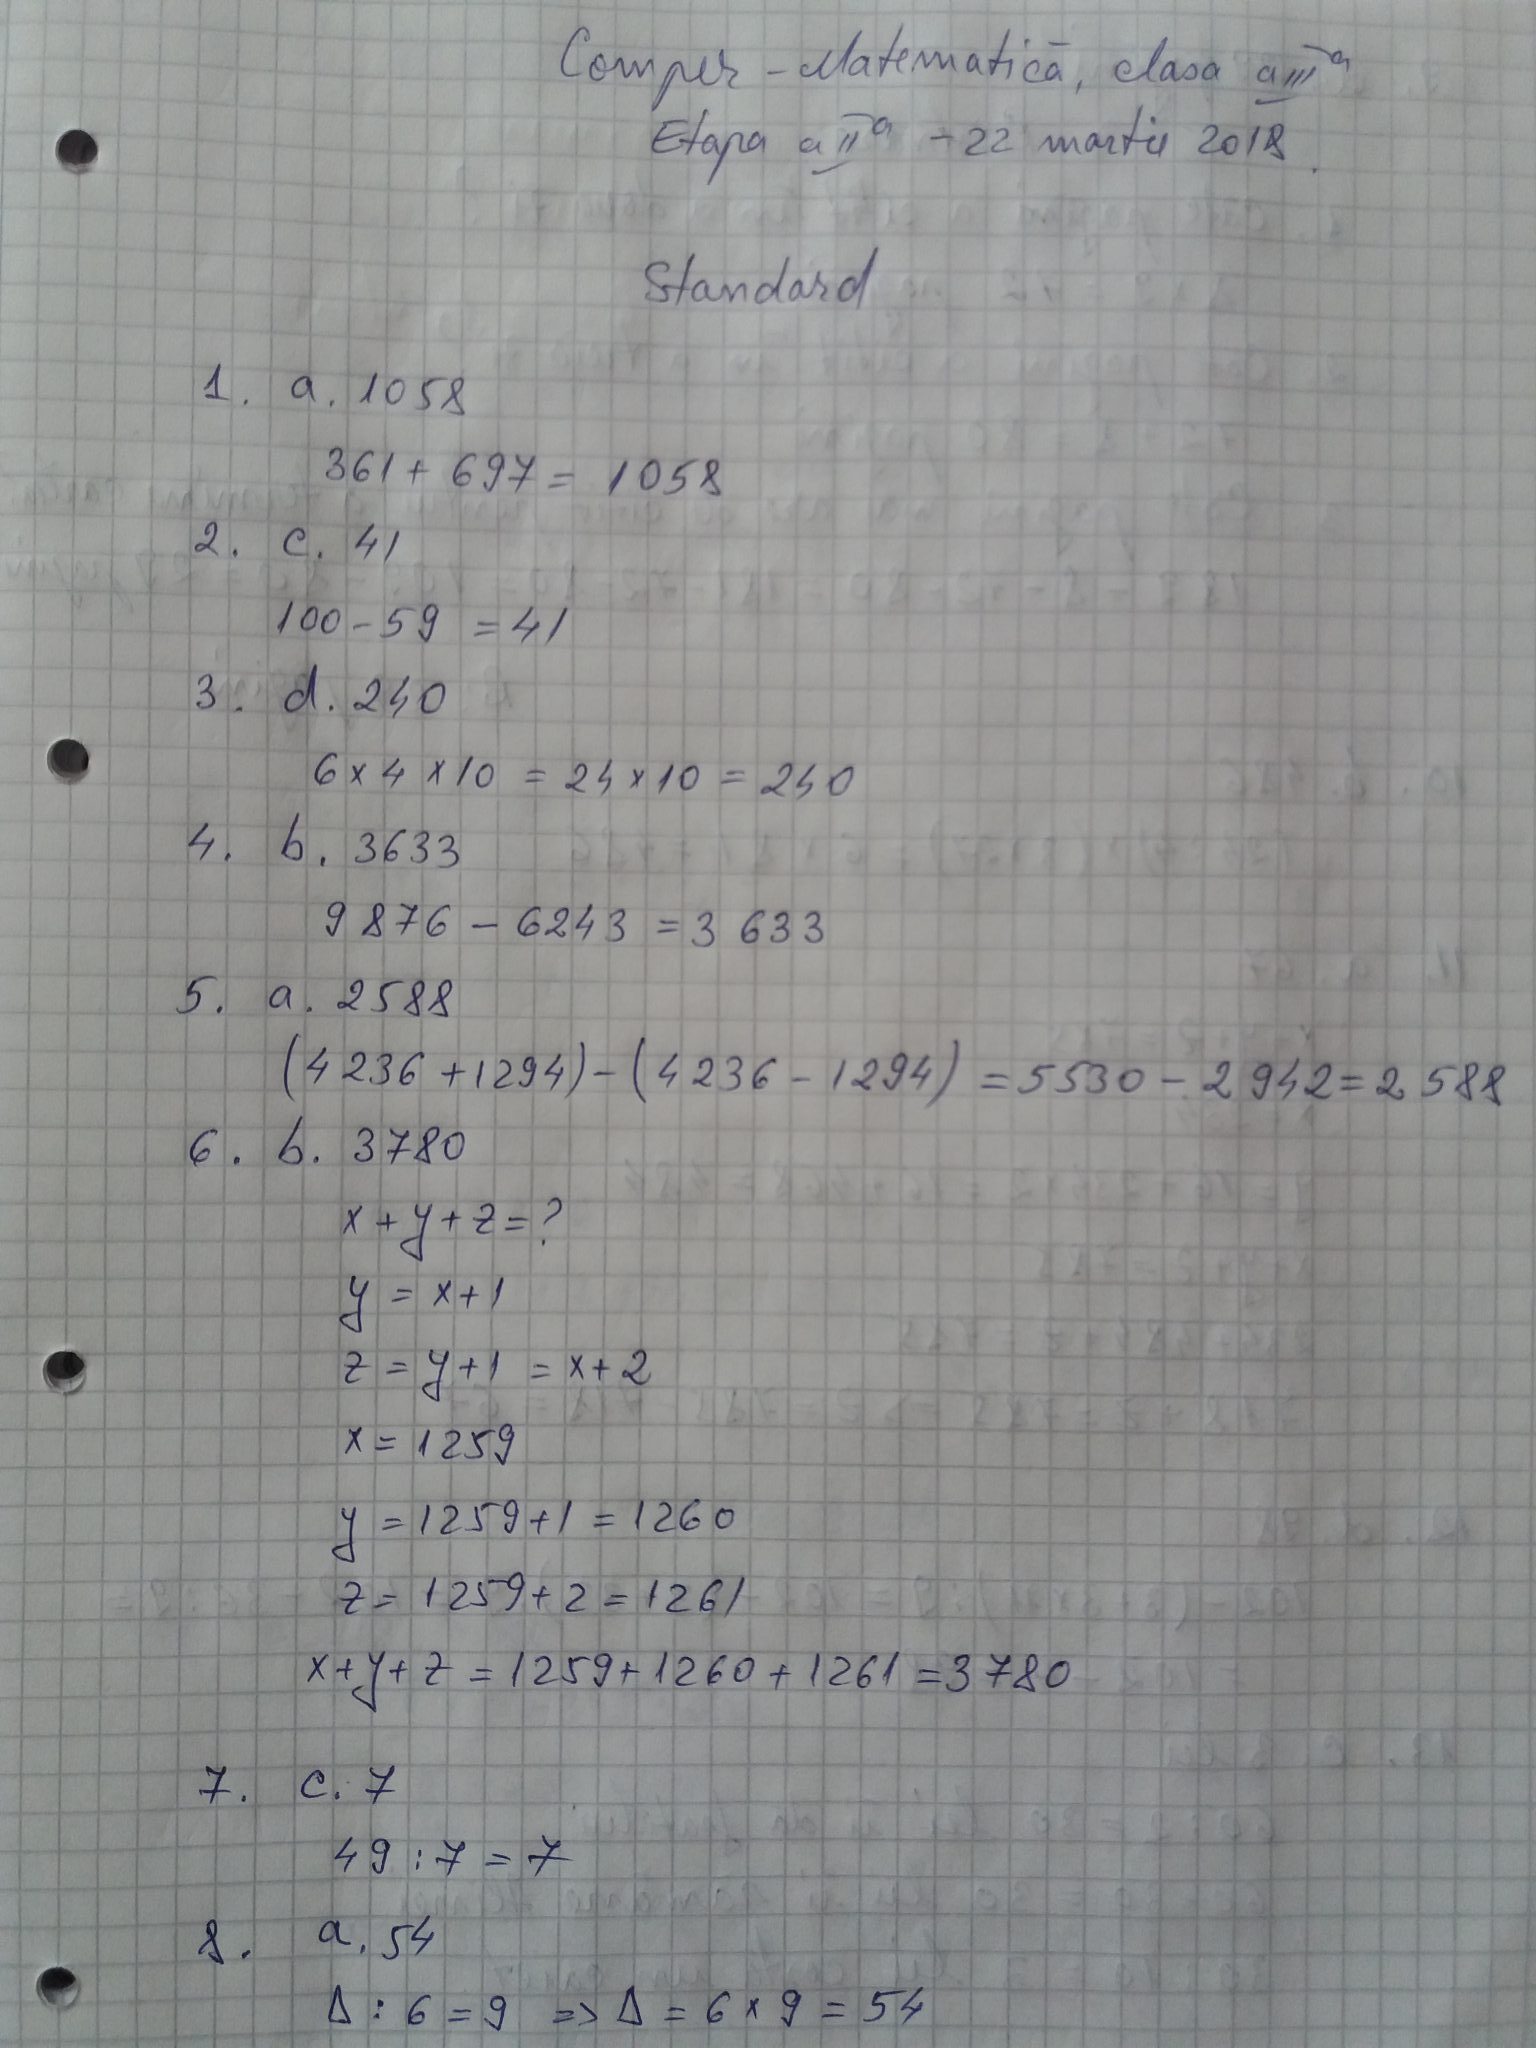 Comper - Matematică, clasa a III a
Etapa a II a - 22 martie 2018.
Standard
1. a. 1058
361 + 697 = 1058
2. c. 41
100 - 59 = 41
3. d. 240
6 x 4 x 10 = 24 x 10 = 240
4. b. 3633
9876 - 6243 = 3633
5. a. 2588
(4236 + 1294) - (4236 - 1294) = 5530 - 2942 = 2588
6. b. 3780
x + y + z = ?
y = x + 1
z = y + 1 = x + 2
x = 1259
y = 1259 + 1 = 1260
z = 1259 + 2 = 1261
x + y + z = 1259 + 1260 + 1261 = 3780
7. c. 7
49 : 7 = 7
8. a. 54
Δ : 6 = 9 => Δ = 6 x 9 = 54